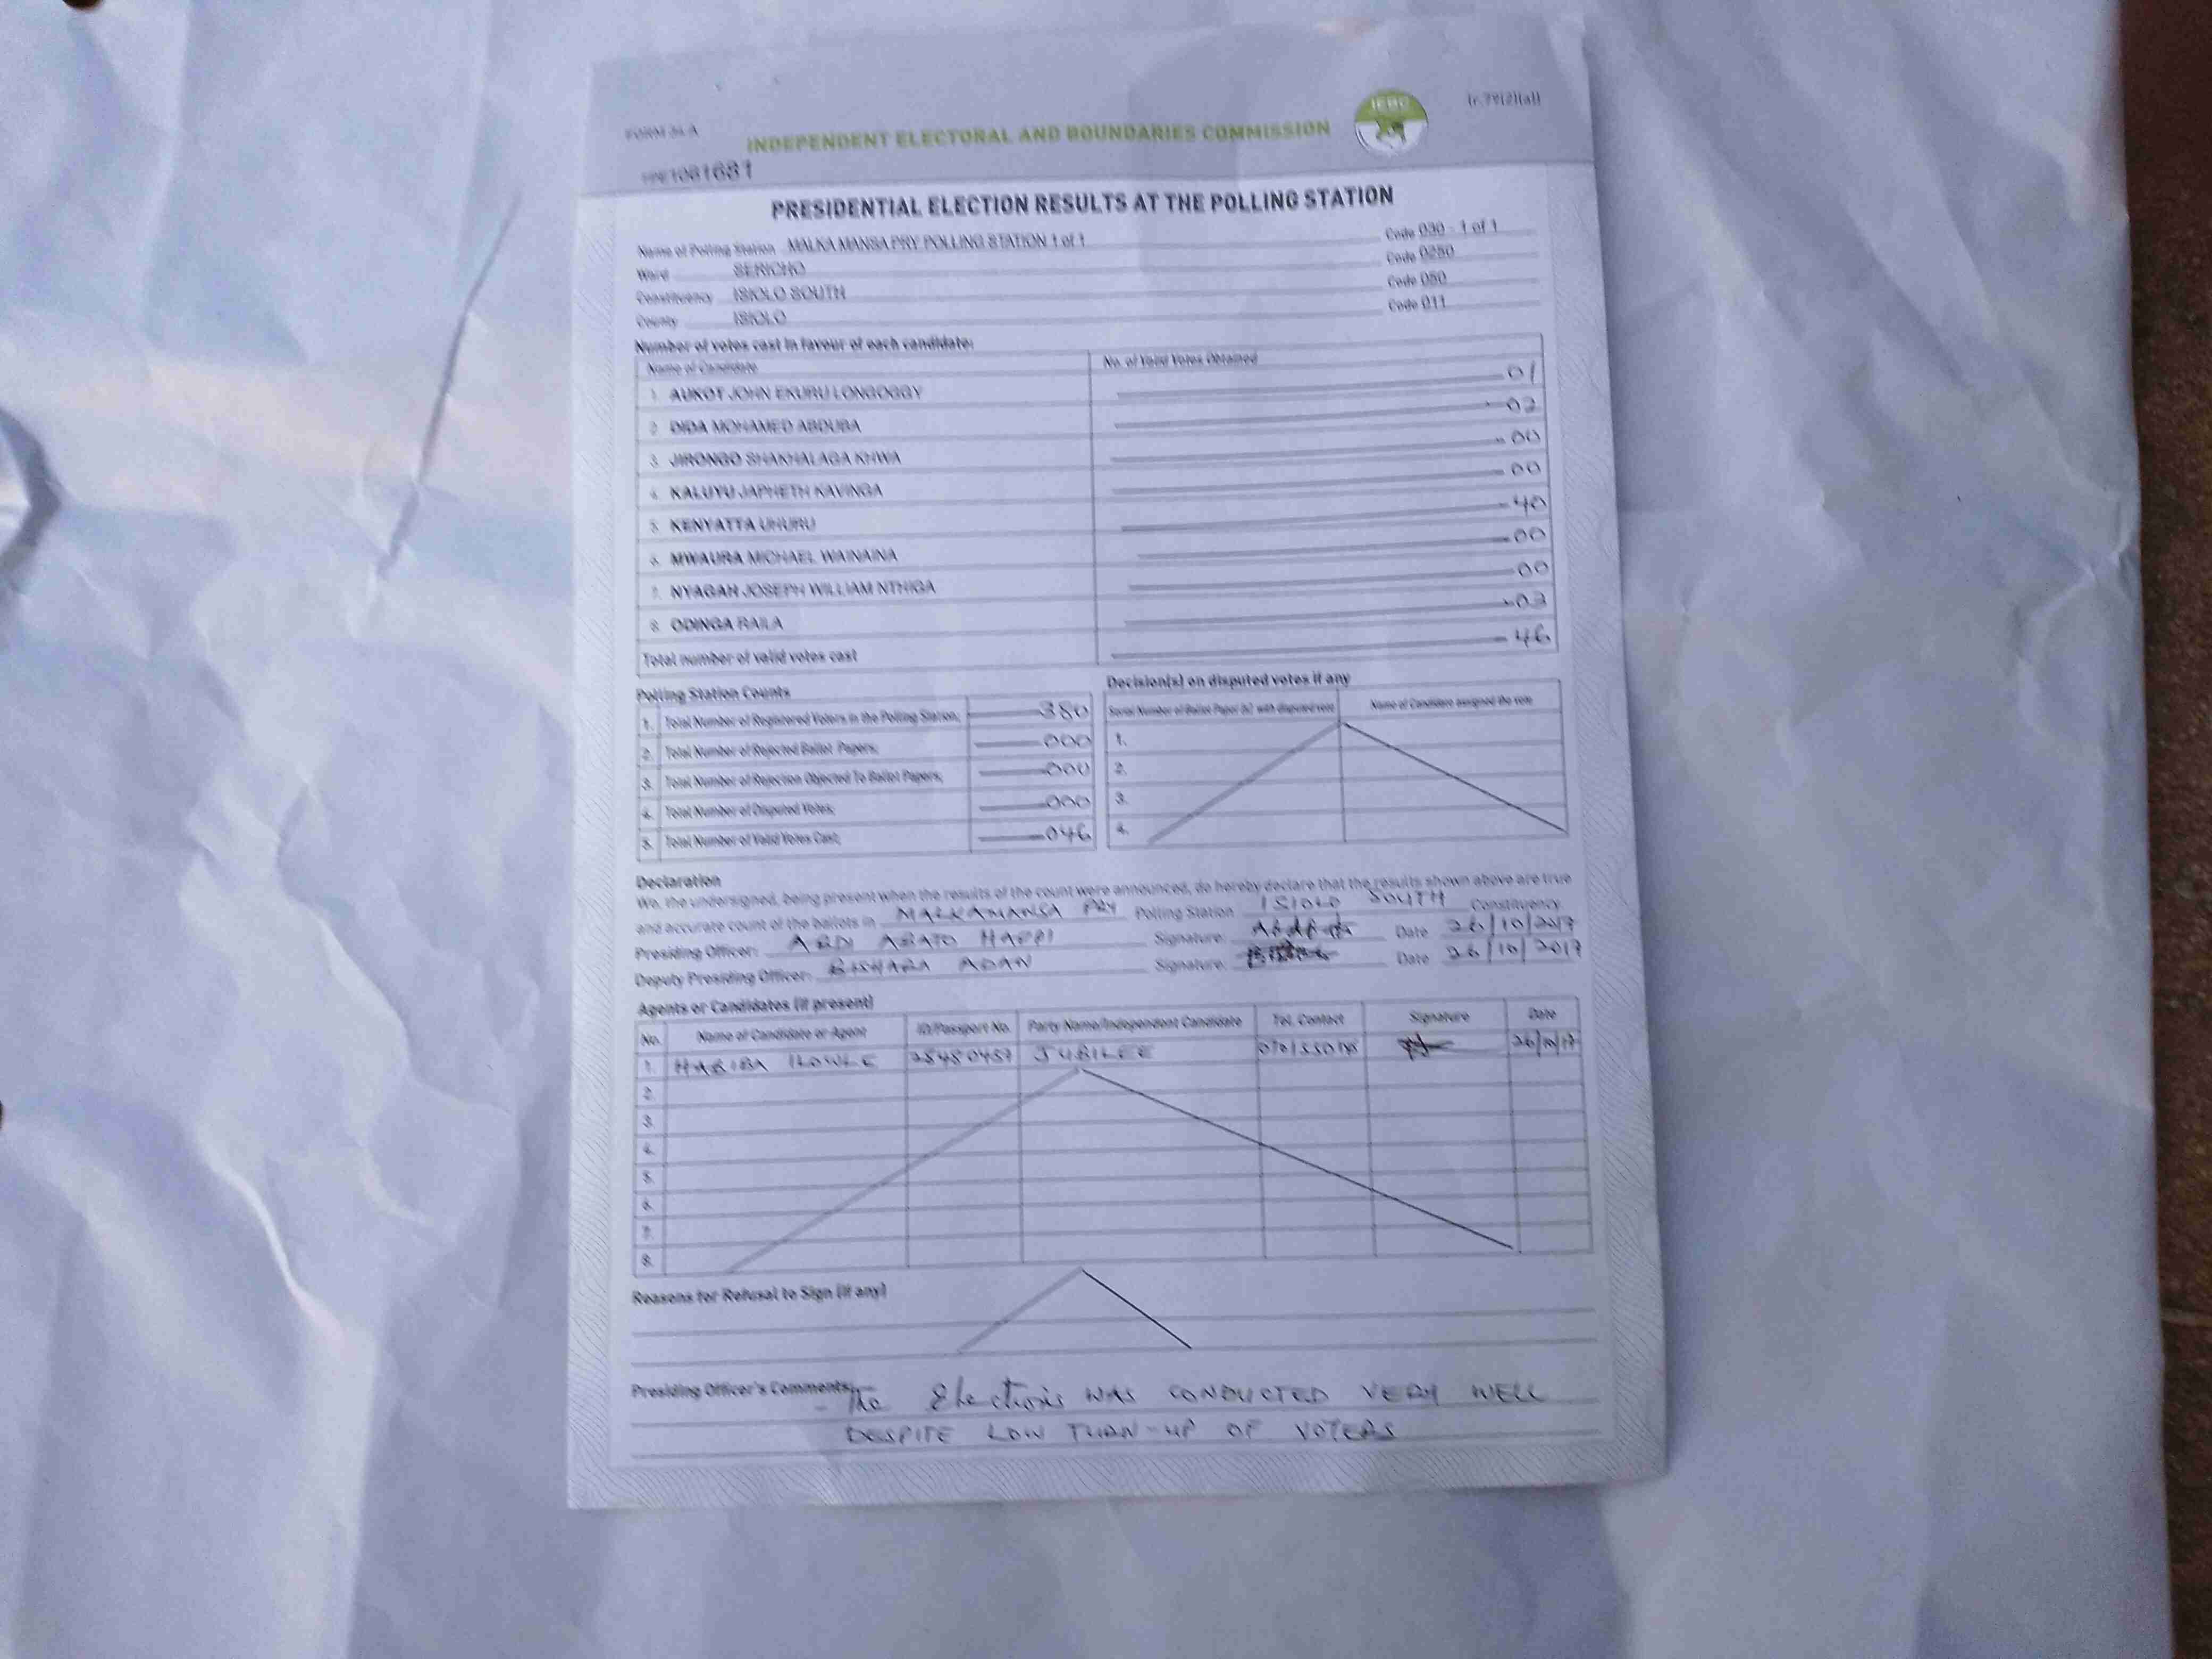 FORM 34 A
INDEPENDENT ELECTORAL AND BOUNDARIES COMMISSION
IEBC
1081681
PRESIDENTIAL ELECTION RESULTS AT THE POLLING STATION
Name of Polling Station MALKA MANSA PRY POLLING STATION 1 of 1 Code 030 - 1 of 1
Ward SERICHO Code 0250
Constituency ISIOLO SOUTH Code 050
County ISIOLO Code 011
Number of votes cast in favour of each candidate:
Name of Candidate No. of Valid Votes Obtained
1. AUKOT JOHN EKURU LONGOGGY 01
2. DIDA MOHAMED ABDUBA 02
3. JIRONGO SHAKHALAGA KHWA 00
4. KALUYU JAPHETH KAVINGA 00
5. KENYATTA UHURU 40
6. MWAURA MICHAEL WAINAINA 00
7. NYAGAH JOSEPH WILLIAM NTHIGA 00
8. ODINGA RAILA 03
Total number of valid votes cast 46
Polling Station Counts
1. Total Number of Registered Voters in the Polling Station; 380
2. Total Number of Rejected Ballot Papers; 000
3. Total Number of Rejection Objected To Ballot Papers; 000
4. Total Number of Disputed Votes; 000
5. Total Number of Valid Votes Cast; 046
Decision(s) on disputed votes if any
Serial Number of Ballot Paper (s) with disputed vote Name of Candidate assigned the vote
1.
2.
3.
4.
Declaration
We, the undersigned, being present when the results of the count were announced, do hereby declare that the results shown above are true
and accurate count of the ballots in MALKAMANSA PRY Polling Station ISIOLO SOUTH Constituency
Presiding Officer: ABDI ABATO HAPPI Signature: Date 26/10/2017
Deputy Presiding Officer: BISHARA ADAN Signature: Date 26/10/2017
Agents or Candidates (if present)
No. Name of Candidate or Agent ID/Passport No. Party Name/Independent Candidate Tel. Contact Signature Date
1. HABIBA JUBILEE 26/10/17
2.
3.
4.
5.
6.
7.
8.
Reasons for Refusal to Sign (if any)
Presiding Officer's Comments: - The Elections WAS CONDUCTED VERY WELL
DESPITE LOW TURN-UP OF VOTERS